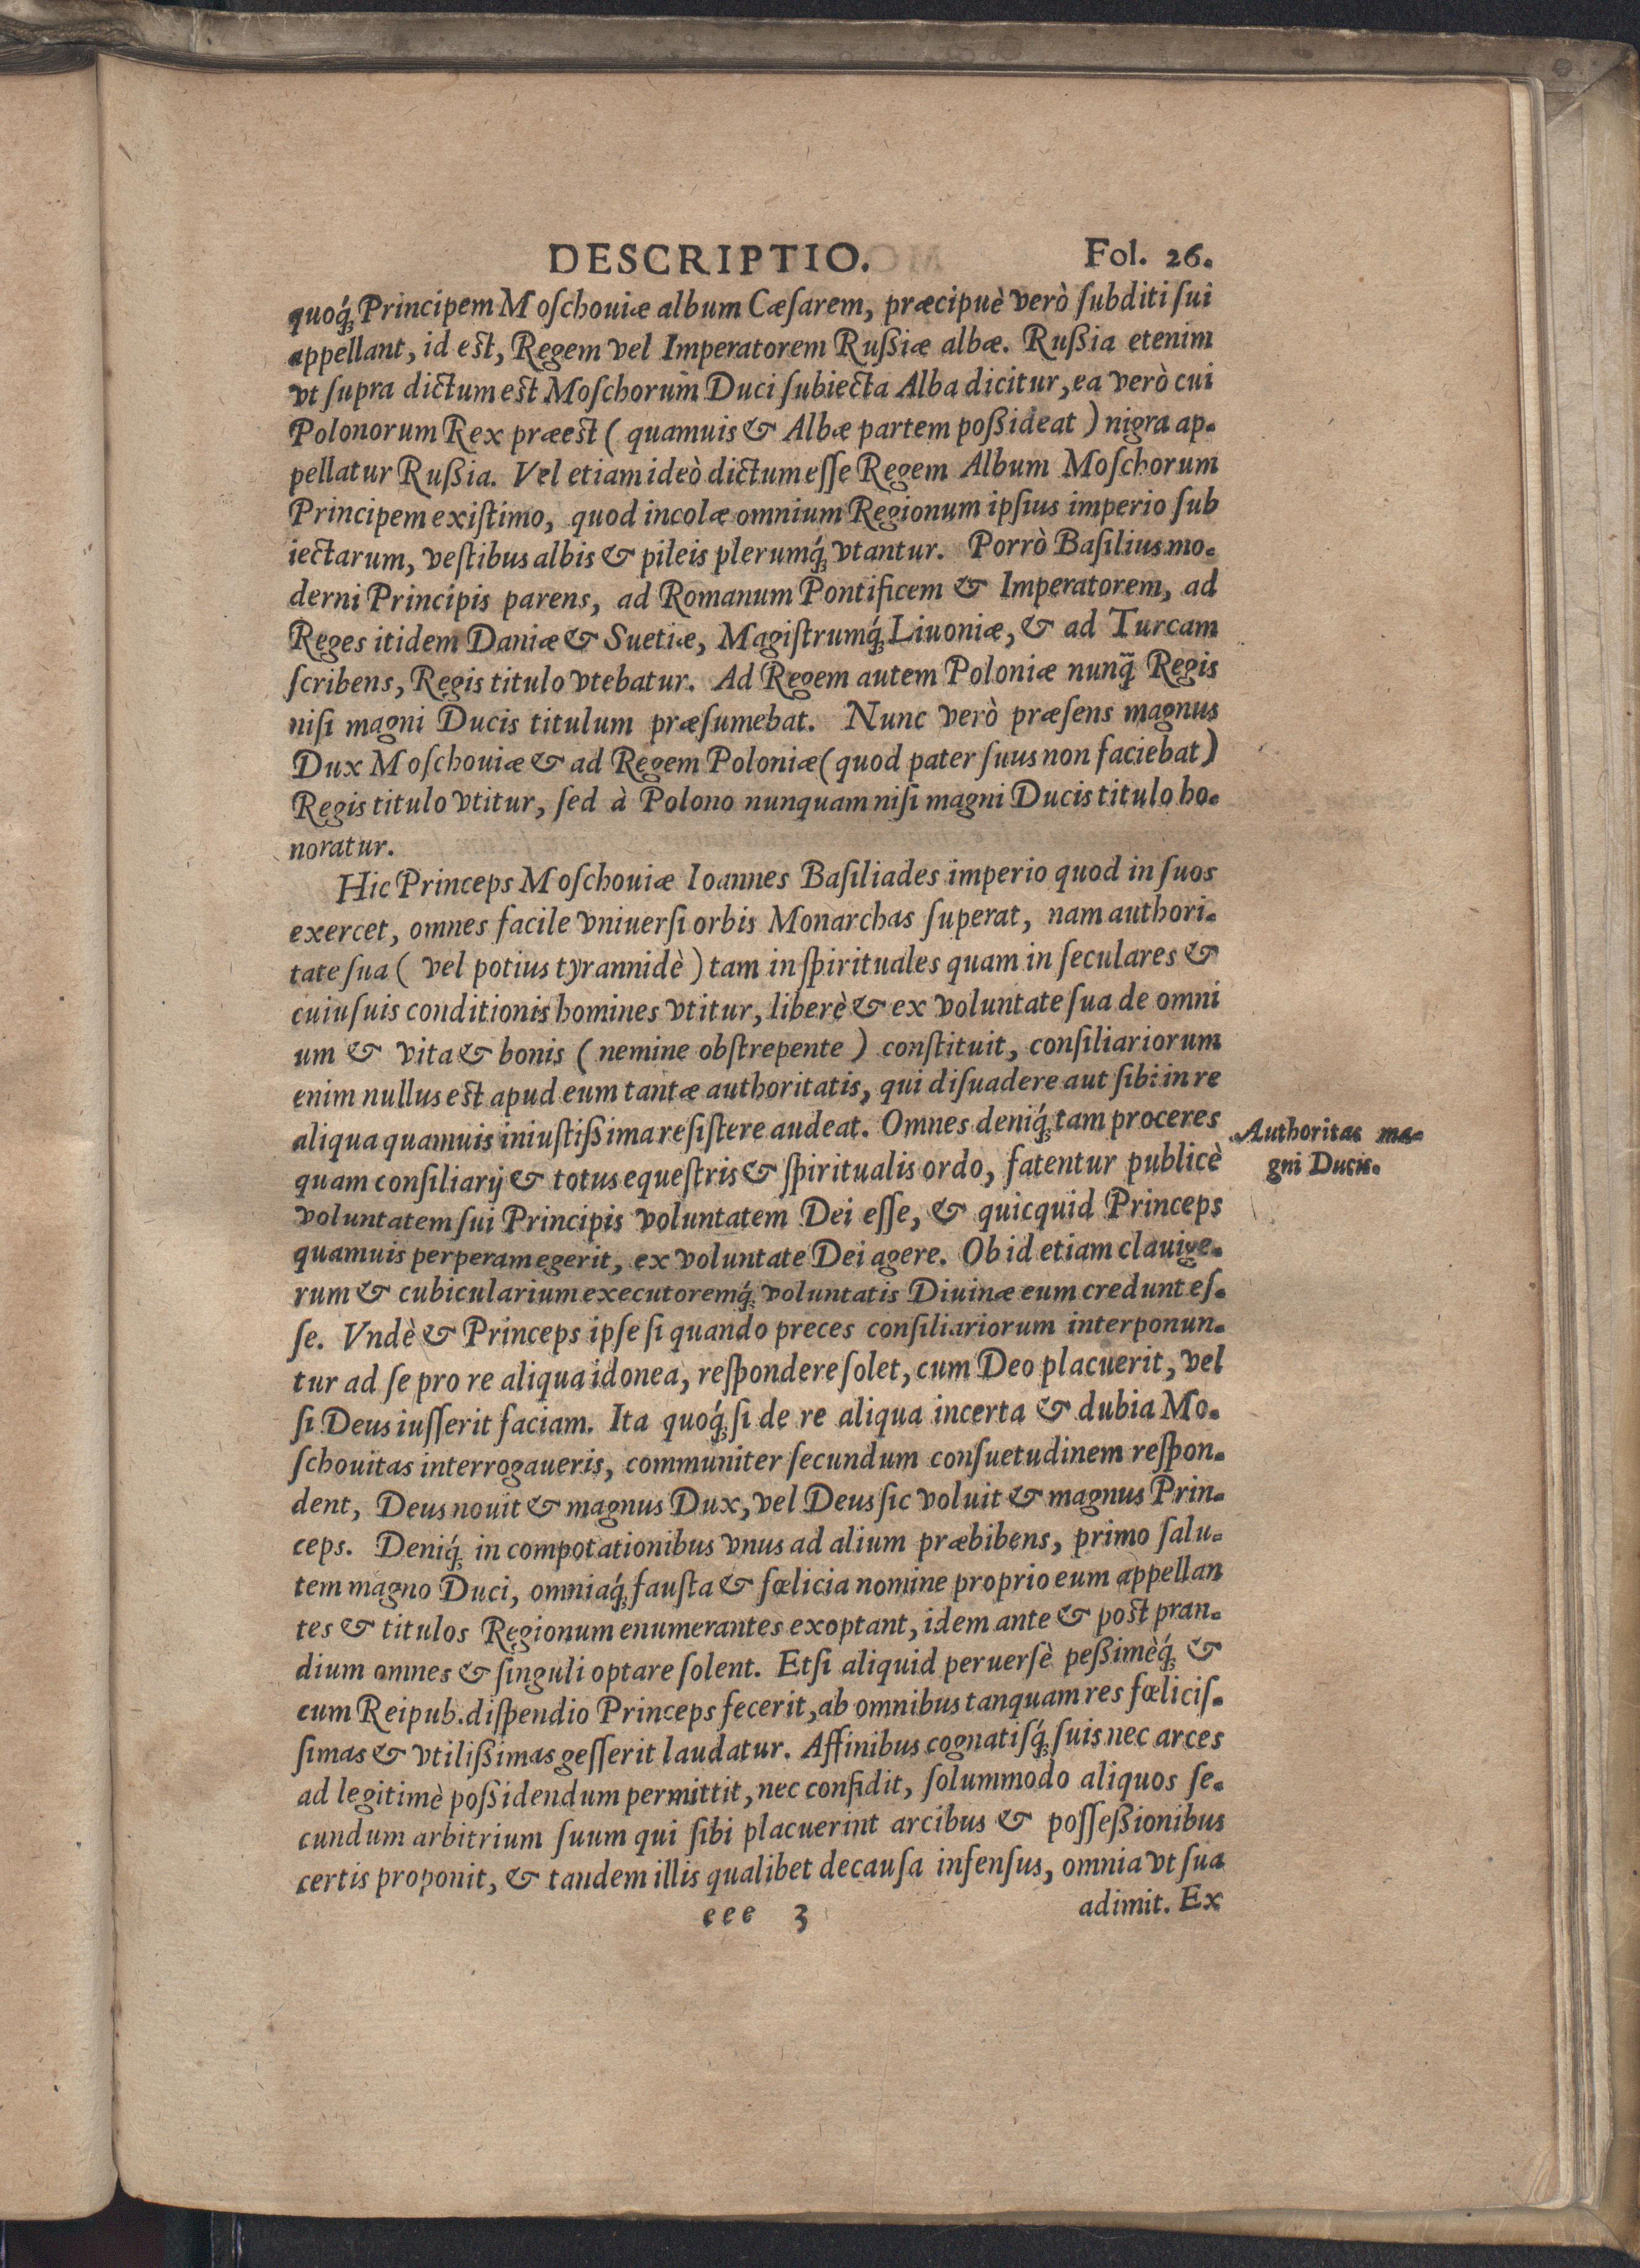 DESCRIPTIO. Fol. 26.
quoq́ꝫ Principem Moſchouiæ album Cæſarem, præcipuè verò ſubditi ſui
appellant, id est, Regem vel Imperatorem Rußiæ albæ. Rußia etenim
vt ſupra dictum est Moſchorum̃ Duci ſubiecta Alba dicitur, ea verò cui
Polonorum Rex præest ( quamuis & Albæ partem poßideat ) nigra ap-
pellatur Rußia. Vel etiam ideò dictum eſſe Regem Album Moſchorum
Principem exiſtimo, quod incolæ omnium Regionum ipſius imperio ſub
iectarum, veſtibus albis & pileis plerumq́ꝫ vtantur. Porrò Baſilius mo-
derni Principis parens, ad Romanum Pontificem & Imperatorem, ad
Reges itidem Daniæ & Suetiæ, Magiſtrumq́ꝫ Liuoniæ, & ad Turcam
ſcribens, Regis titulo vtebatur. Ad Regem autem Poloniæ nunq̃ Regis
niſi magni Ducis titulum præſumebat. Nunc verò præſens magnus
Dux Moſchouiæ & ad Regem Poloniæ ( quod pater ſuus non faciebat )
Regis titulo vtitur, ſed à Polono nunquam niſi magni Ducis titulo ho-
noratur.
Hic Princeps Moſchouiæ Ioannes Baſiliades imperio quod in ſuos
exercet, omnes facile vniuerſi orbis Monarchas ſuperat, nam authori-
tate ſua ( vel potius tyrannidè ) tam in ſpirituales quam in ſeculares &
cuiuſuis conditionis homines vtitur, liberè & ex voluntate ſua de omni
um & vita & bonis ( nemine obſtrepente ) conſtituit, conſiliariorum
enim nullus est apud eum tantæ authoritatis, qui diſuadere aut ſibi in re
aliqua quamuis iniuſtißima reſiſtere audeat. Omnes deniq́ꝫ tam proceres
quam conſiliarij & totus equeſtris & ſpiritualis ordo, fatentur publicè
Authoritas ma-
gni Ducis.
voluntatem ſui Principis voluntatem Dei eſſe, & quicquid Princeps
quamuis perperam egerit, ex voluntate Dei agere. Ob id etiam clauige-
rum & cubicularium executoremq́ꝫ voluntatis Diuinæ eum credunt eſ-
ſe. Vndè & Princeps ipſe ſi quando preces conſiliariorum interponun-
tur ad ſe pro re aliqua idonea, reſpondere ſolet, cum Deo placuerit, vel
ſi Deus iuſſerit faciam. Ita quoq́ꝫ ſi de re aliqua incerta & dubia Mo-
ſchouitas interrogaueris, communiter ſecundum conſuetudinem reſpon-
dent, Deus nouit & magnus Dux, vel Deus ſic voluit & magnus Prin-
ceps. Deniq́ꝫ in compotationibus vnus ad alium præbibens, primo ſalu-
tem magno Duci, omniaq́ꝫ fauſta & fœlicia nomine proprio eum appellan
tes & titulos Regionum enumerantes exoptant, idem ante & post pran-
dium omnes & ſinguli optare ſolent. Etſi aliquid peruerſè peßimèq́ꝫ &
cum Reipub. diſpendio Princeps fecerit, ab omnibus tanquam res fœliciſ-
ſimas & vtilißimas geſſerit laudatur. Affinibus cognatiſq́ꝫ ſuis nec arces
ad legitimè poßidendum permittit, nec confidit, ſolummodo aliquos ſe-
cundum arbitrium ſuum qui ſibi placuerint arcibus & poſſeßionibus
certis proponit, & tandem illis qualibet de cauſa infenſus, omnia vt ſua
eee 3 adimit. Ex